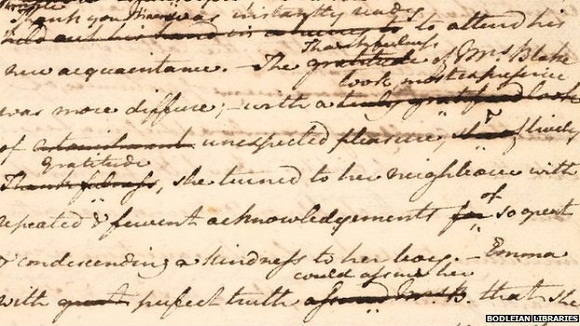 simple
Thank you Ma'am was instantly ready
held out his hand to to attend his
new acquaintance. — The gratitude of Mrs Blake
Thankfulness
look most expressive
was more diffuse; — with a gratified look
of astonishment unexpected pleasure, & lively
Gratitude
Thankfulness, she turned to her neighbour with
of
repeated & fervent acknowledgements for so great
& condescending a kindness to her boy. — Emma
could assure her
with great perfect truth assured Mrs B. that she
BODLEIAN LIBRARIES